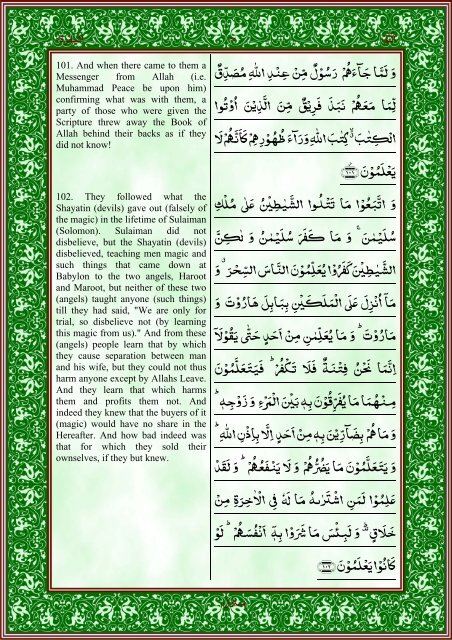 101. And when there came to them a
Messenger from Allah (i.e.
Muhammad Peace be upon him)
confirming what was with them, a
party of those who were given the
Scripture threw away the Book of
Allah behind their backs as if they
did not know!
وَ لَمَّا جَآءَهُمْ رَسُوْلٌ مِّنْ عِنْدِ اللّٰهِ مُصَدِّقٌ
لِّمَا مَعَهُمْ نَبَذَ فَرِيْقٌ مِّنَ الَّذِيْنَ اُوْتُوا
الْكِتٰبَ ۙ كِتٰبَ اللّٰهِ وَرَآءَ ظُهُوْرِهِمْ كَاَنَّهُمْ لَا
يَعْلَمُوْنَ ﴿۱۰۱﴾
102. They followed what the
Shayatin (devils) gave out (falsely of
the magic) in the lifetime of Sulaiman
(Solomon). Sulaiman did not
disbelieve, but the Shayatin (devils)
disbelieved, teaching men magic and
such things that came down at
Babylon to the two angels, Haroot
and Maroot, but neither of these two
(angels) taught anyone (such things)
till they had said, "We are only for
trial, so disbelieve not (by learning
this magic from us)." And from these
(angels) people learn that by which
they cause separation between man
and his wife, but they could not thus
harm anyone except by Allahs Leave.
And they learn that which harms
them and profits them not. And
indeed they knew that the buyers of it
(magic) would have no share in the
Hereafter. And how bad indeed was
that for which they sold their
ownselves, if they but knew.
وَ اتَّبَعُوْا مَا تَتْلُوا الشَّيٰطِيْنُ عَلٰى مُلْكِ
سُلَيْمٰنَ ۚ وَ مَا كَفَرَ سُلَيْمٰنُ وَ لٰكِنَّ
الشَّيٰطِيْنَ كَفَرُوْا يُعَلِّمُوْنَ النَّاسَ السِّحْرَ ۙ وَ
مَاۤ اُنْزِلَ عَلَى الْمَلَكَيْنِ بِبَابِلَ هَارُوْتَ وَ
مَارُوْتَ ؕ وَ مَا يُعَلِّمٰنِ مِنْ اَحَدٍ حَتّٰى يَقُوْلَاۤ
اِنَّمَا نَحْنُ فِتْنَةٌ فَلَا تَكْفُرْ ؕ فَيَتَعَلَّمُوْنَ
مِنْهُمَا مَا يُفَرِّقُوْنَ بِهٖ بَيْنَ الْمَرْءِ وَ زَوْجِهٖ ؕ
وَ مَا هُمْ بِضَآرِّيْنَ بِهٖ مِنْ اَحَدٍ اِلَّا بِاِذْنِ اللّٰهِ ؕ
وَ يَتَعَلَّمُوْنَ مَا يَضُرُّهُمْ وَ لَا يَنْفَعُهُمْ ؕ وَ لَقَدْ
عَلِمُوْا لَمَنِ اشْتَرٰىهُ مَا لَهٗ فِى الْاٰخِرَةِ مِنْ
خَلَاقٍ ۟ؕ وَ لَبِئْسَ مَا شَرَوْا بِهٖۤ اَنْفُسَهُمْ ؕ لَوْ
كَانُوْا يَعْلَمُوْنَ ﴿۱۰۲﴾